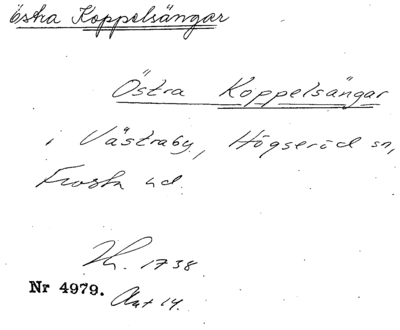 Östra Koppelsängar
Östra Koppelsängar
i Västraby, Högseröd sn,
Frosta hd.
1738.
Nr 4979. Akt 14.